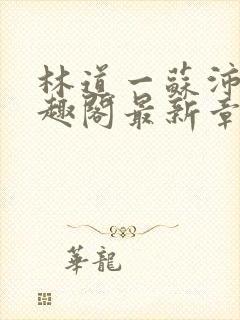 林道一蘇沛
趣閣最新章
華龍